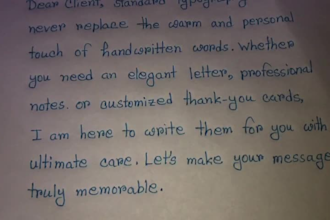 Dear Client, standard
never replace the warm and personal
touch of handwritten words. whether
you need an elegant letter, professional
notes. or customized thank-you cards,
I am here to write them for you with
ultimate care. Let's make your message
truly memorable.